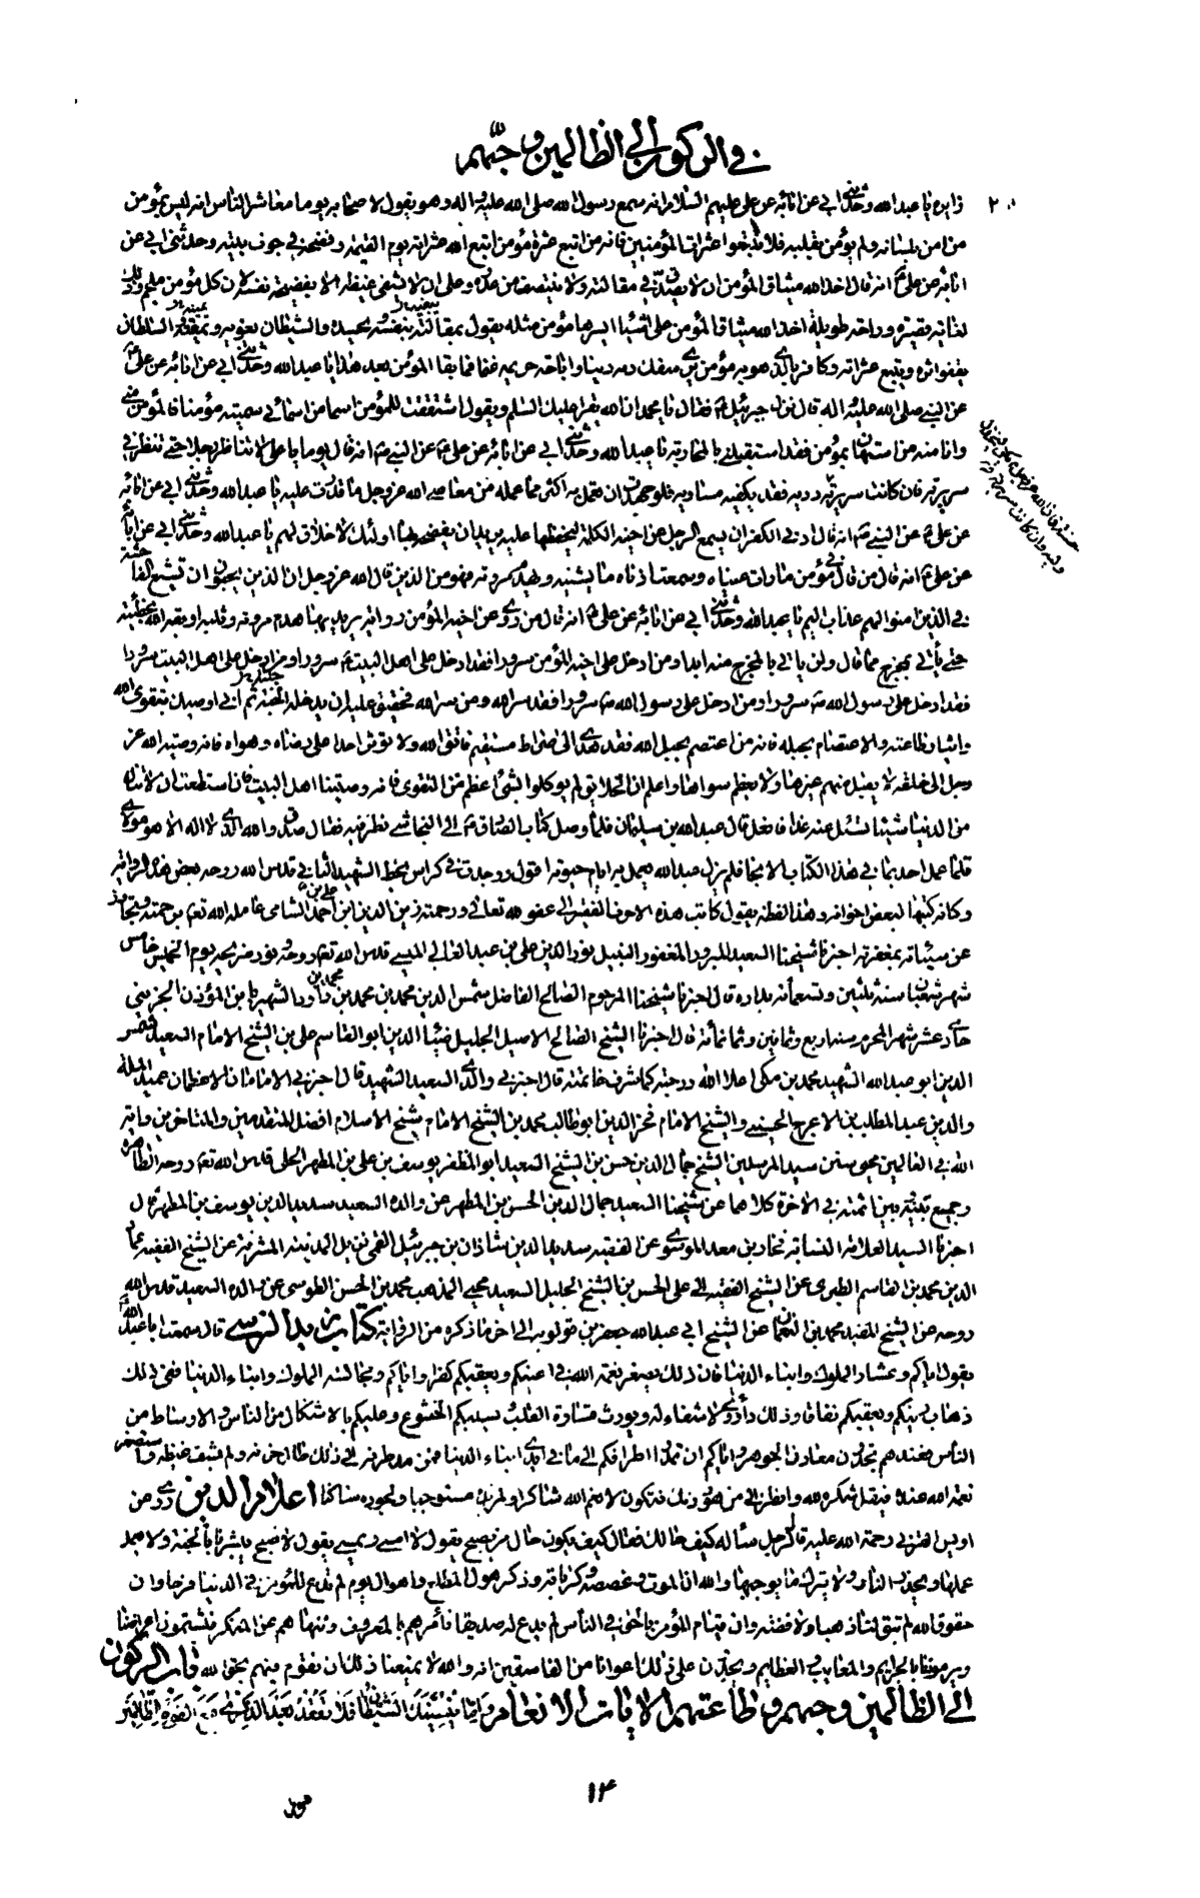 في الركون الى الظالمين و حبّهم
٢٠
زائره يا عبد الله وحدثني ابي عن ابائه عن علي عليهم السلام انه سمع رسول الله صلى الله عليه واله وهو يقول لاصحابه يوما معاشر الناس انه ليس بمؤمن
من امن بلسانه ولم يؤمن بقلبه فلا تتبعوا عثرات المؤمنين فانه من اتبع عثرة مؤمن اتبع الله عثراته يوم القيمة وفضحه في جوف بيته وحدثني ابي عن
ابائه عن علي ع انه قال اخذ الله ميثاق المؤمن ان لا يصدق في مقالته ولا ينتصف من عدوه وعلى ان لا يشفى غيظه الا بفضيحة نفسه لان كل مؤمن ملجم وذلك
لغاية قصيرة وراحة طويلة اخذ الله ميثاق المؤمن على اشياء ايسرها مؤمن مثله يقول بمقالته يحسده والشيطان يغويه ويمقته السلطان
يقفو اثره ويتبع عثراته وكافر بالذي هو به مؤمن يرى سفك دمه دينا واباحة حريمه غنما فما بقاء المؤمن بعد هذا يا عبد الله وحدثني ابي عن ابائه عن علي ع
عن النبي صلى الله عليه واله قال نزل جبرئيل ع فقال يا محمد ان الله يقرا عليك السلم ويقول اشتققت للمؤمن اسما من اسمائي سميته مؤمنا فالمؤمن مني
وانا منه من استهان بمؤمن فقد استقبلني بالمحاربة يا عبد الله وحدثني ابي عن ابائه عن علي ع عن النبي ص انه قال يوما يا علي لا تناظر رجلا حتى تنظر في
سريرته فان كانت سريرته ردية فقد يكفيه مساويه فلو جهدت ان تعمل به اكثر مما عمله من معاصي الله عز وجل ما قدرت عليه يا عبد الله وحدثني ابي عن ابائه
عن علي ع عن النبي ص انه قال ادنى الكفر ان يسمع الرجل عن اخيه الكلمة ليحفظها عليه يريد ان يفضحه بها اولئك لا خلاق لهم يا عبد الله وحدثني ابي عن ابائه
عن علي ع انه قال من قال في مؤمن ما رات عيناه وسمعت اذناه ما يشينه ويهدم مروته فهو من الذين قال الله عز وجل ان الذين يحبون ان تشيع الفاحشة
في الذين امنوا لهم عذاب اليم يا عبد الله وحدثني ابي عن ابائه عن علي ع انه قال من روى عن اخيه المؤمن رواية يريد بها هدم مروته وثلبه اوبقه الله بخطيئته
حتى يأتي بمخرج مما قال ولن ياتي بالمخرج منه ابدا ومن ادخل على اخيه المؤمن سرورا فقد ادخل على اهل البيت ع سرورا ومن ادخل على اهل البيت سرورا
فقد ادخل على رسول الله ص سرورا ومن ادخل على رسول الله ص سرورا فقد سر الله ومن سر الله فحقيق عليه ان يدخله الجنة ثم اني اوصيك بتقوى الله
وايثار طاعته والاعتصام بحبله فانه من اعتصم بحبل الله فقد هدى الى صراط مستقيم فاتق الله ولا تؤثر احدا على رضاه وهواه فانه وصية الله عز
وجل الى خلقه لا يقبل منهم غيرها ولا يعظم سواها واعلم ان الخلايق لم يوكلوا بشئ اعظم من التقوى فانه وصيتنا اهل البيت فان استطعت ان لا تنال
من الدنيا شيئا تسئل عنه غدا فافعل قال عبد الله بن سليمان فلما وصل كتاب الصادق ع الى النجاشي نظر فيه فقال صدق والله الذي لا اله الا هو مولاي
فلما عمل احد بما في هذا الكتاب الا نجا فلم يزل عبد الله يعمل به ايام حيوته اقول وجدت في كراس بخط الشهيد الثاني قدس الله روحه بعض هذه الرواية
وكانه كتبها لبعض اخوانه وهذا لفظه يقول كاتب هذه الاحرف الفقير الى عفو الله تعالى ورحمته زين الدين ابن علي بن احمد الشامي عامله الله تع برحمته وتجاوز
عن سيئاته بمغفرته اخبرنا شيخنا السعيد المبرور المغفور النبيل نور الدين علي بن عبد العالي الميسي قدس الله تع روحه ونور ضريحه يوم الخميس خامس
شهر شعبان سنة ثلثين وتسعمأئة بداره قال اخبرنا شيخنا المرحوم الصالح الفاضل شمس الدين محمد بن محمد بن محمد بن داود الشهير بابن المؤذن الجزيني
حادي عشر شهر المحرم سنة اربع وثمانين وثمانمأئة قال اخبرنا الشيخ الصالح الاصيل الجليل ضياء الدين ابو القاسم علي بن الشيخ الامام السعيد شمس
الدين ابو عبد الله الشهيد محمد بن مكي اعلا الله درجته كما شرف خاتمته قال اخبرني والدي السعيد الشهيد قال اخبرني الامامان الاعظمان عميد الملة
والدين عبد المطلب بن الاعرج الحسيني والشيخ الامام فخر الدين ابو طالب محمد بن الشيخ الامام شيخ الاسلام افضل المتقدمين والمتاخرين واية
الله في العالمين محيي سنن سيد المرسلين الشيخ جمال الدين حسن بن الشيخ السعيد ابو المظفر يوسف بن علي بن المطهر الحلي قدس الله تع روحه الطاهرة
وجمع بينه وبين ائمته في الاخرة كلاهما عن شيخنا السعيد جمال الدين الحسن بن المطهر عن والده السعيد سديد الدين يوسف بن المطهر قال
اخبرنا السيد العلامة النسابة فخار بن معد الموسوي عن الفقيه سديد الدين شاذان بن جبرئيل القمي نزيل المدينة المشرفة عن الشيخ الفقيه عماد
الدين محمد بن القاسم الطبري عن الشيخ الفقيه ابي علي الحسن بن الشيخ الجليل السعيد محيي المذهب محمد بن الحسن الطوسي عن والده السعيد قدس الله
روحه عن الشيخ المفيد محمد بن النعمان عن الشيخ ابي عبد الله جعفر بن قولويه الى اخر ما ذكره من الرواية كتاب زيد النرسي قال سمعت ابا عبد الله
يقول اياكم وعشار الملوك وابناء الدنيا فان ذلك يصغر نعمة الله في اعينكم ويعقبكم كفرا واياكم ومجالسة الملوك وابناء الدنيا ففي ذلك
ذهاب دينكم ويعقبكم نفاقا وذلك داء دوي لا شفاء له ويورث قساوة القلب ويسلبكم الخشوع وعليكم بالاشكال من الناس والاوساط من
الناس فعندهم تجدون معادن الجوهر واياكم ان تمدوا اطرافكم الى ما في ايدي ابناء الدنيا فمن مد طرفه الى ذلك طال حزنه ولم يشف غيظه واستصغر
نعمة الله عنده فيقل شكره لله وانظر الى من هو دونك فتكون لانعم الله شاكرا ولمزيده مستوجبا ولجوده ساكنا اعلام الدين روى عن
اويس القرني رحمة الله عليه قال لرجل سأله كيف حالك فقال كيف يكون حال من يصبح يقول لا امسى ويمسي يقول لا اصبح يبشر بالجنة ولا يعمل
عملها ويحذر النار ولا يترك ما يوجبها والله ان الموت وغصصه وكرباته وذكر هول المطلع واهوال يوم لم تدع للمؤمن في الدنيا فرحا وان
حقوق الله لم تبق لنا ذهبا ولا فضة وان قيام المؤمن بالحق في الناس لم يدع له صديقا نأمرهم بالمعروف وننهاهم عن المنكر فيشتمون اعراضنا
ويرموننا بالجرايم والمعايب والعظايم ويجدون على ذلك اعوانا من الفاسقين انه والله لا يمنعنا ذلك ان نقوم فيهم بحق الله باب الركون
الى الظالمين وحبهم وطاعتهم الايات الانعام وَاِمّا يُنْسِيَنَّكَ الشَّيْطانُ فَلا تَقْعُدْ بَعْدَ الذِّكْرى مَعَ القَوْمِ الظّالِمينَ
١٤
هود